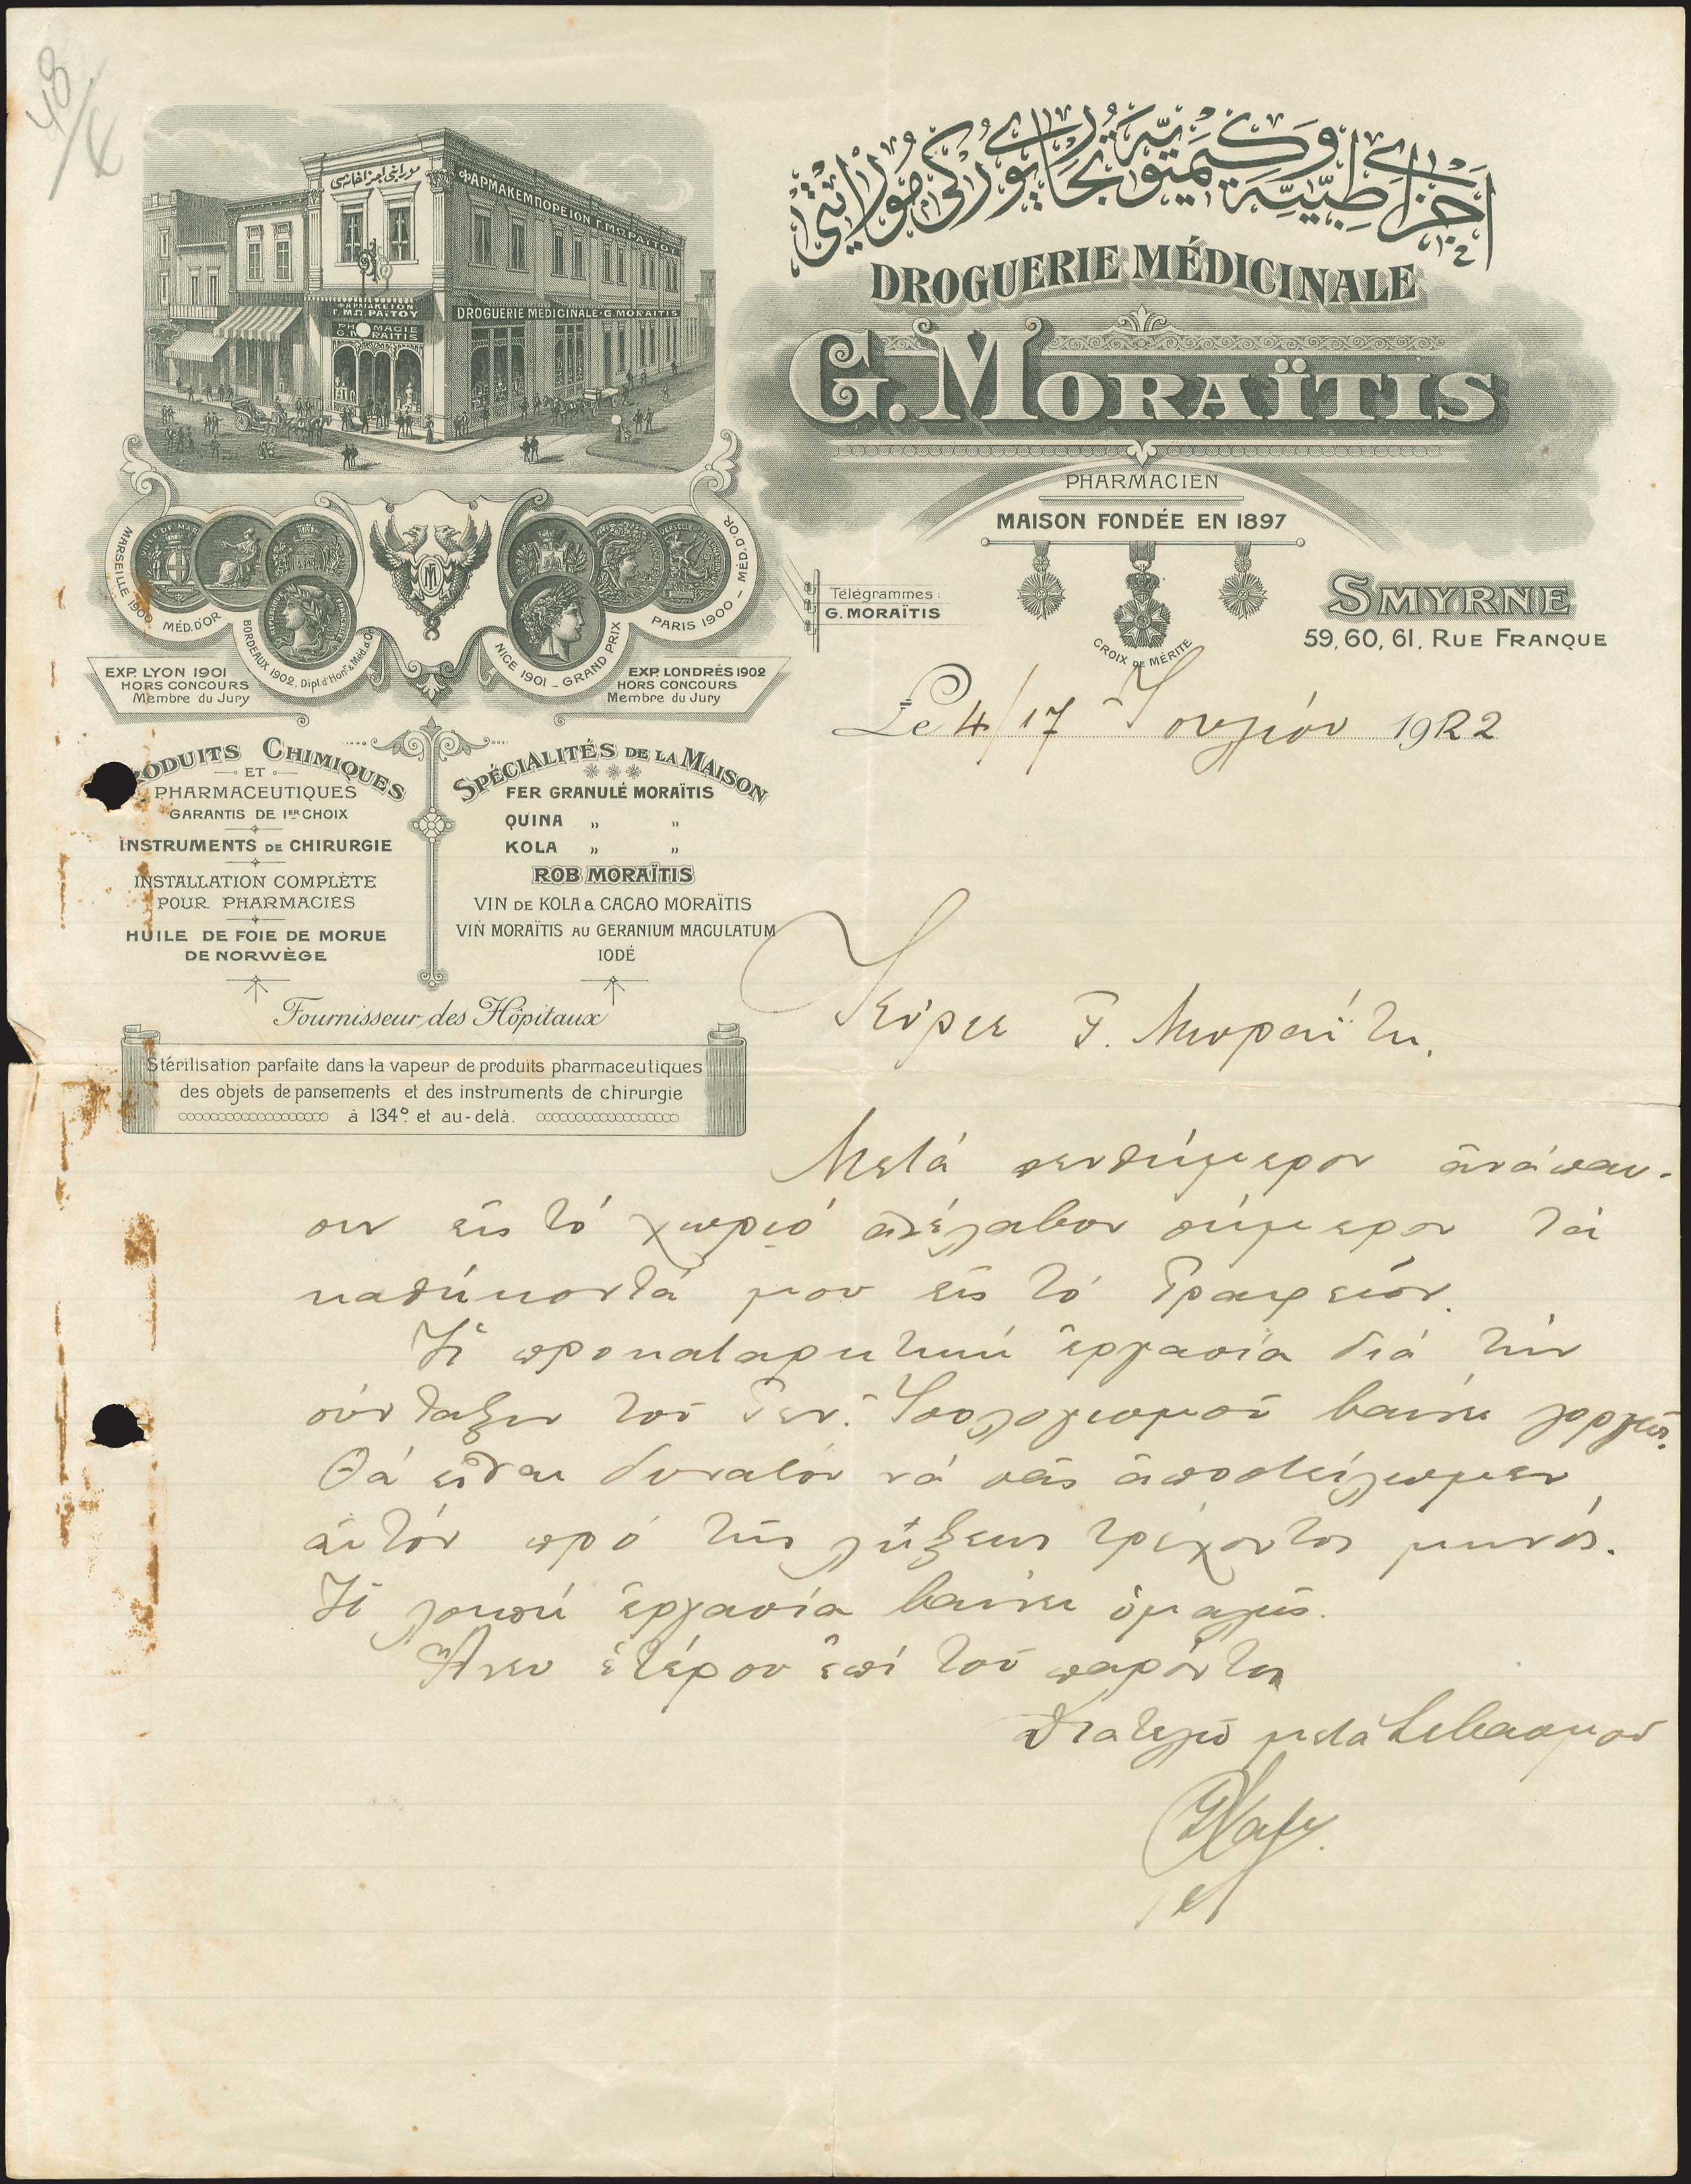 48/
موراىتى اجزاخانه‌سى
ΦΑΡΜΑΚΕΜΠΟΡΕΙΟΝ Γ. ΜΩΡΑΪΤΟΥ
ΦΑΡΜΑΚΕΙΟΝ
Γ. ΜΩΡΑΪΤΟΥ
PHARMACIE
G. MORAÏTIS
DROGUERIE MEDICINALE · G. MORAITIS
DROGUERIE MÉDICINALE
G. MORAÏTIS
PHARMACIEN
MAISON FONDÉE EN 1897
CROIX DE MÉRITE
Télégrammes:
G. MORAÏTIS
SMYRNE
59, 60, 61, RUE FRANQUE
MARSEILLE 1900 MÉD. D'OR
BORDEAUX 1902. Dipl. d'Honr. & Méd. d'Or
NICE 1901 - GRAND PRIX
PARIS 1900 - MÉD. D'OR
EXP. LYON 1901
HORS CONCOURS
Membre du Jury
EXP. LONDRÉS 1902
HORS CONCOURS
Membre du Jury
Le 4/17 Ἰουλίου 1922
PRODUITS CHIMIQUES
ET
PHARMACEUTIQUES
GARANTIS DE 1ER CHOIX
INSTRUMENTS DE CHIRURGIE
INSTALLATION COMPLÈTE
POUR PHARMACIES
HUILE DE FOIE DE MORUE
DE NORWÈGE
SPÉCIALITÉS DE LA MAISON
FER GRANULÉ MORAÏTIS
QUINA „ „
KOLA „ „
ROB MORAÏTIS
VIN DE KOLA & CACAO MORAÏTIS
VIN MORAÏTIS AU GERANIUM MACULATUM
IODÉ
Fournisseur des Hôpitaux
Stérilisation parfaite dans la vapeur de produits pharmaceutiques
des objets de pansements et des instruments de chirurgie
à 134° et au-delà.
Κύριε Γ. Μωραΐτη.
Μετά πενθήμερον ἀνάπαυ-
σιν εἰς τό χωριό ἀνέλαβον σήμερον τά
καθήκοντά μου εἰς τό Γραφεῖον.
Ἡ προκαταρκτική ἐργασία διά τήν
σύνταξιν τοῦ Γεν. Ἰσολογισμοῦ βαίνει γοργῶς.
Θά εἶναι δυνατόν νά σᾶς ἀποστείλωμεν
αὐτόν πρό τῆς λήξεως τρέχοντος μηνός.
Ἡ λοιπή ἐργασία βαίνει ὁμαλῶς.
Ἄνευ ἑτέρου ἐπί τοῦ παρόντος
διατελῶ μετά Σεβασμοῦ